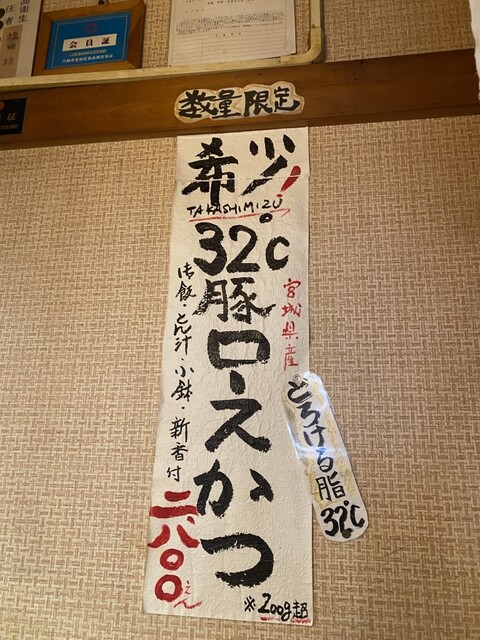 会員証
数量限定
希少!
TAKASHIMIZU
32°C
豚ロースかつ
宮城県産
とろける脂
32℃
御飯・とん汁・小鉢・新香付
二八〇〇えん
※200g超